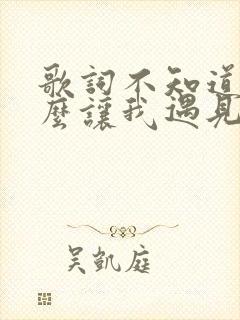 歌詞不知道
麼讓我遇見
吳凱庭